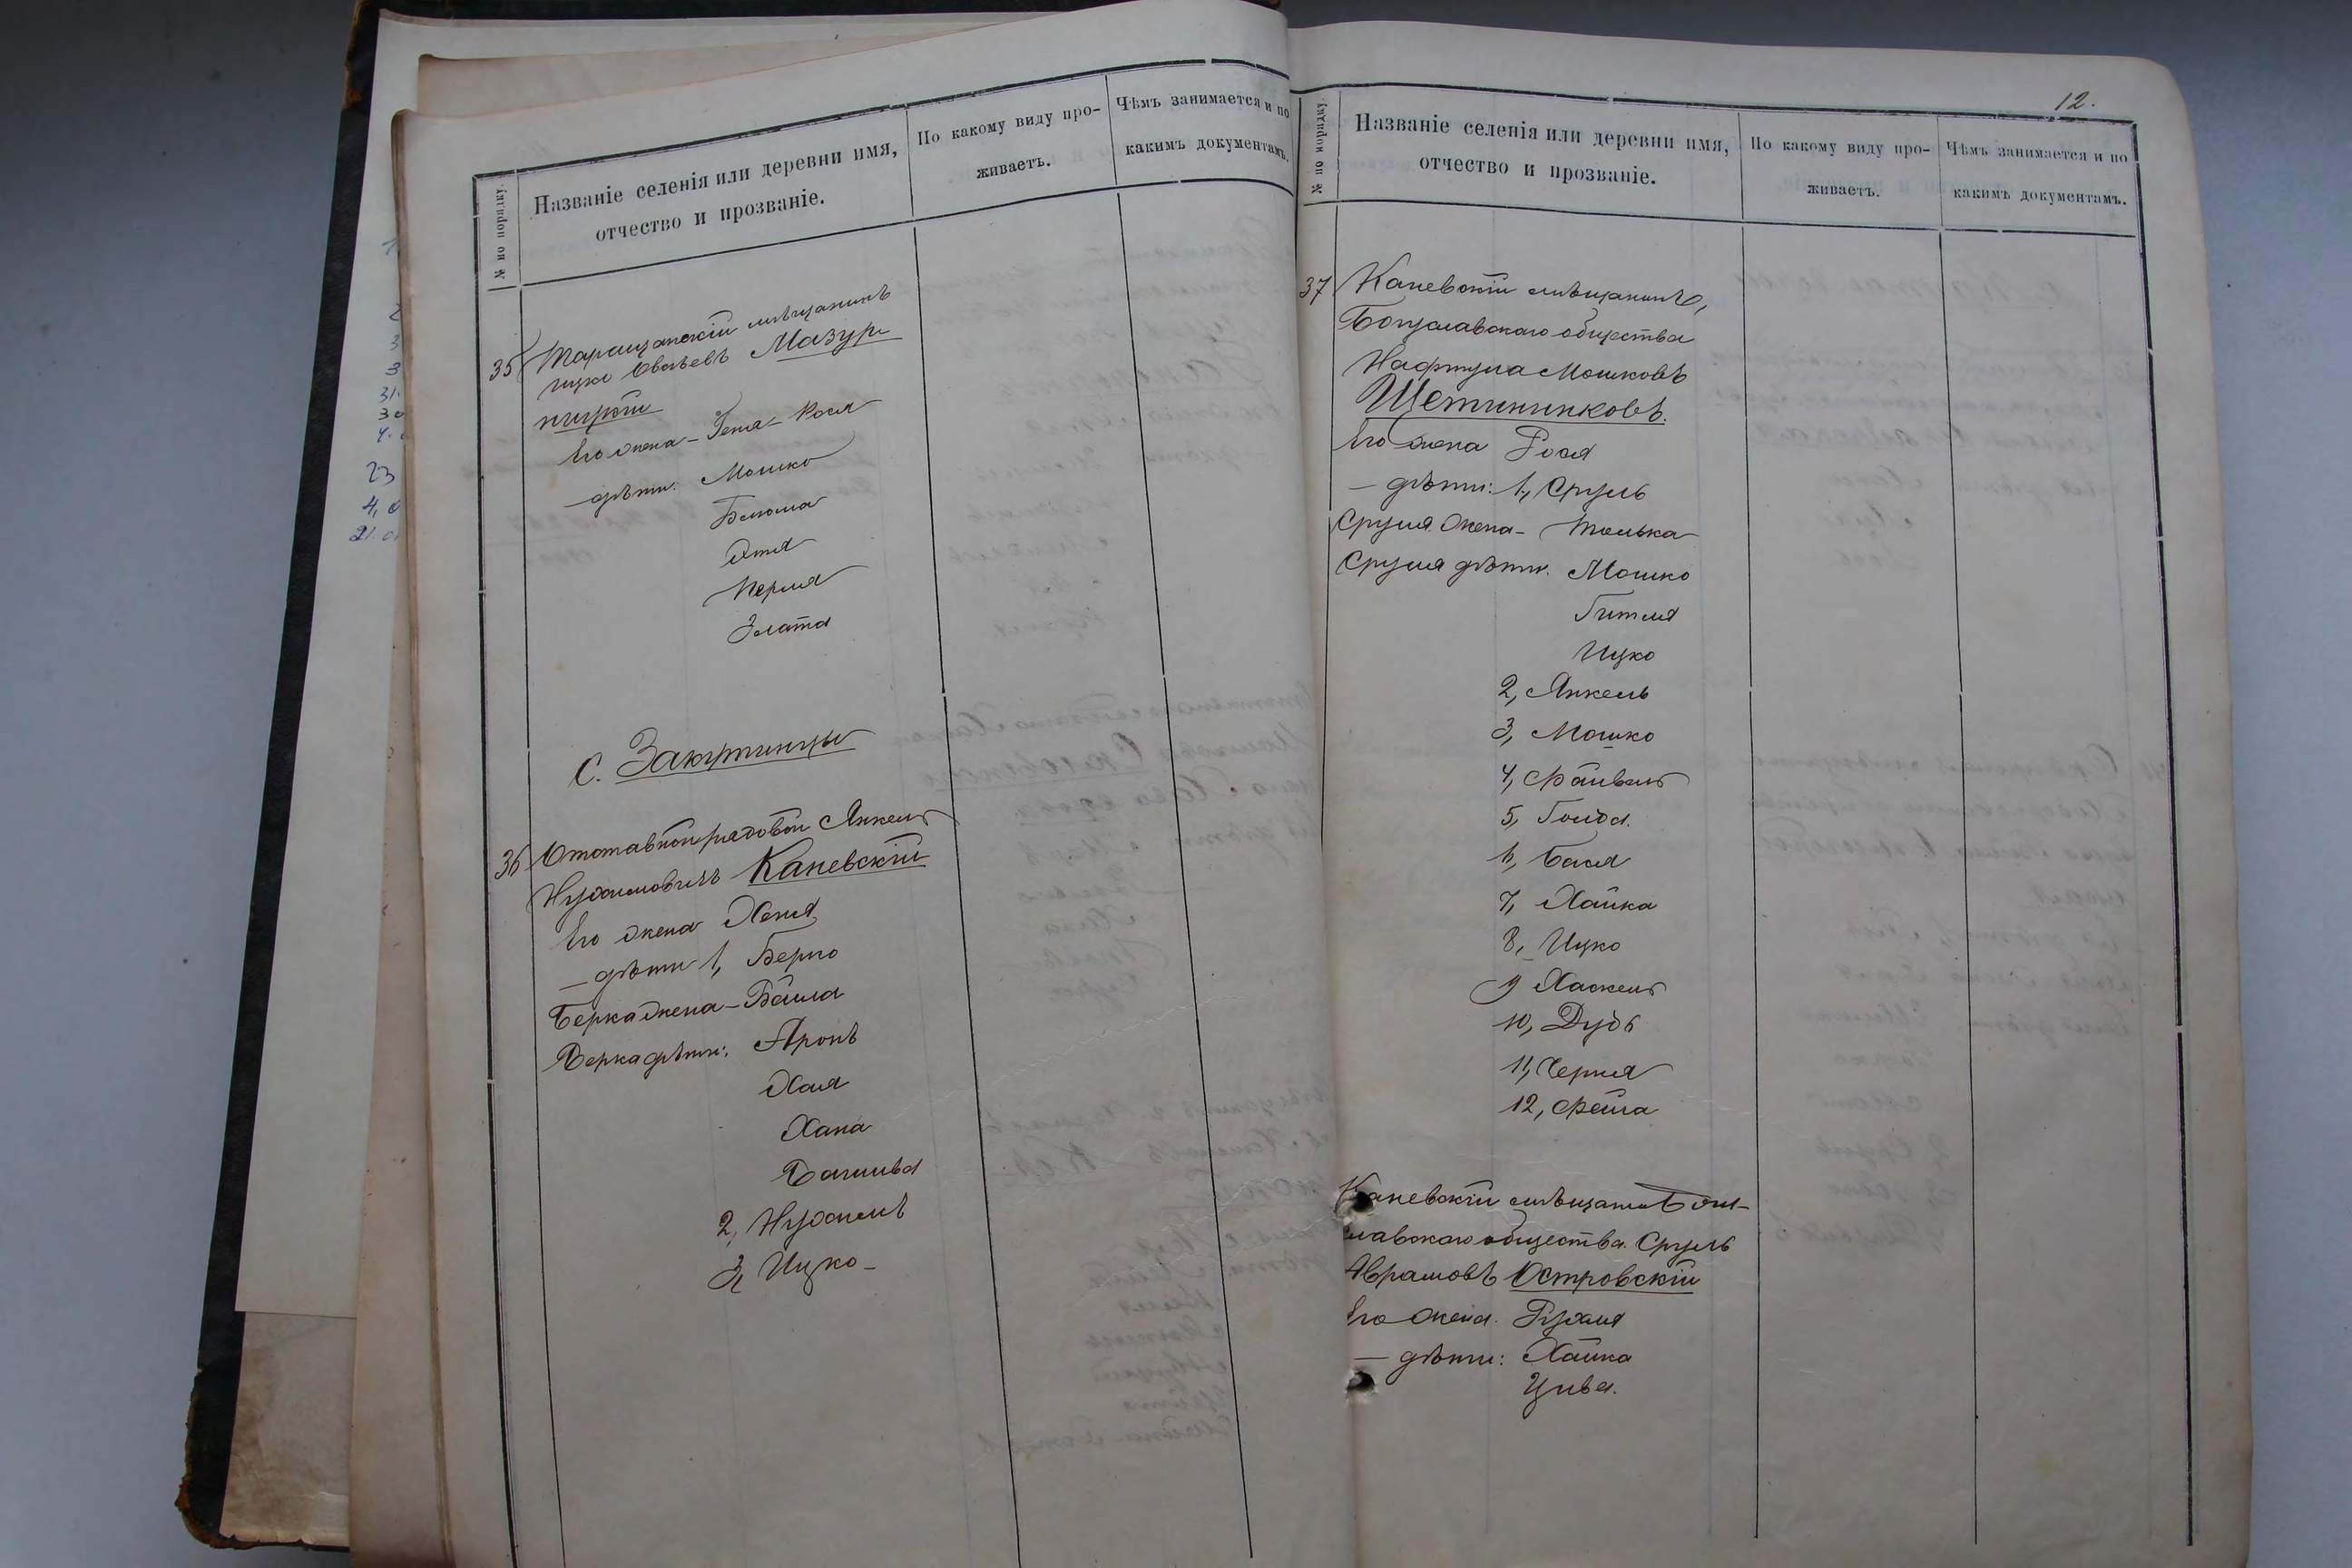 № по порядку.
Названіе селенія или деревни имя,
отчество и прозваніе.
По какому виду про-
живаетъ.
Чѣмъ занимается и по
какимъ документамъ.
35 Таращанскій мѣщанинъ
Ицко Овсѣевъ Мазур
Его жена - Геня - Рося
- дѣти: Мошко
Блюма
Этя
Перля
Злата
С. Закутинцы
36 Отставной рядовой Янкель
Нухимовичъ Каневскій
Его жена Хеня
- дѣти 1, Берко
Берка жена - Бейла
Берка дѣти: Аронъ
Хая
Хана
Башива
2, Нухимъ
3, Ицко -
12.
№ по порядку.
Названіе селенія или деревни имя,
отчество и прозваніе.
По какому виду про-
живаетъ.
Чѣмъ занимается и по
какимъ документамъ.
37 Каневскій мѣщанинъ,
Богуславскаго общества
Нафтула Мошковъ
Щетининковъ.
Его жена Рося
- дѣти: 1, Сруль
Сруля жена - Толька
Сруля дѣти. Мошко
Гитля
Ицко
2, Янкель
3, Мошко
4, Файвель
5, Голда.
6, Бася
7, Хайка
8, Ицко
9 Хаскель
10, Дудь
11, Черня
12, Фейга
Каневскій мѣщанинъ Богу-
славскаго общества. Сруль
Аврамовъ Островскій
Его жена. Рухля
- дѣти: Хайка
Цива.